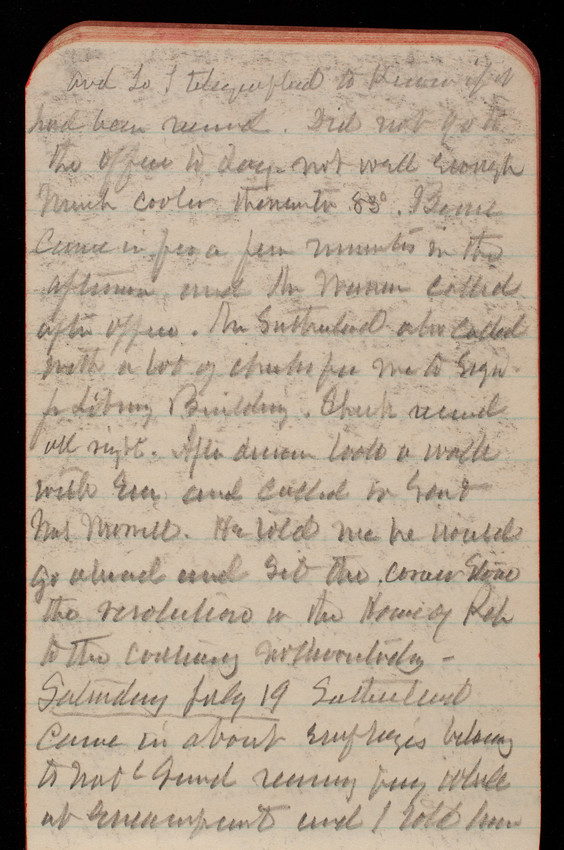 and so I telegraphed to know if it
had been received. Did not go to
the office to day. not well enough
Much cooler thermomtr 83°. Bernie
Came in for a few minutes in the
afternoon and Mr Warren called
after office. Mr Sutherland also called
with a lot of checks for me to sign
for Library Building. Check received
all right. After dinner took a walk
with and called on Gent
Mrs Morrill. He told me he would
go ahead and set the corner stone
the resolution in the House of Rep
to the contrary notwithstdg -
Saturday July 19 Sutherland
Came in about employes belong
to Natl Guard receiving pay while
at Encampment and I told him